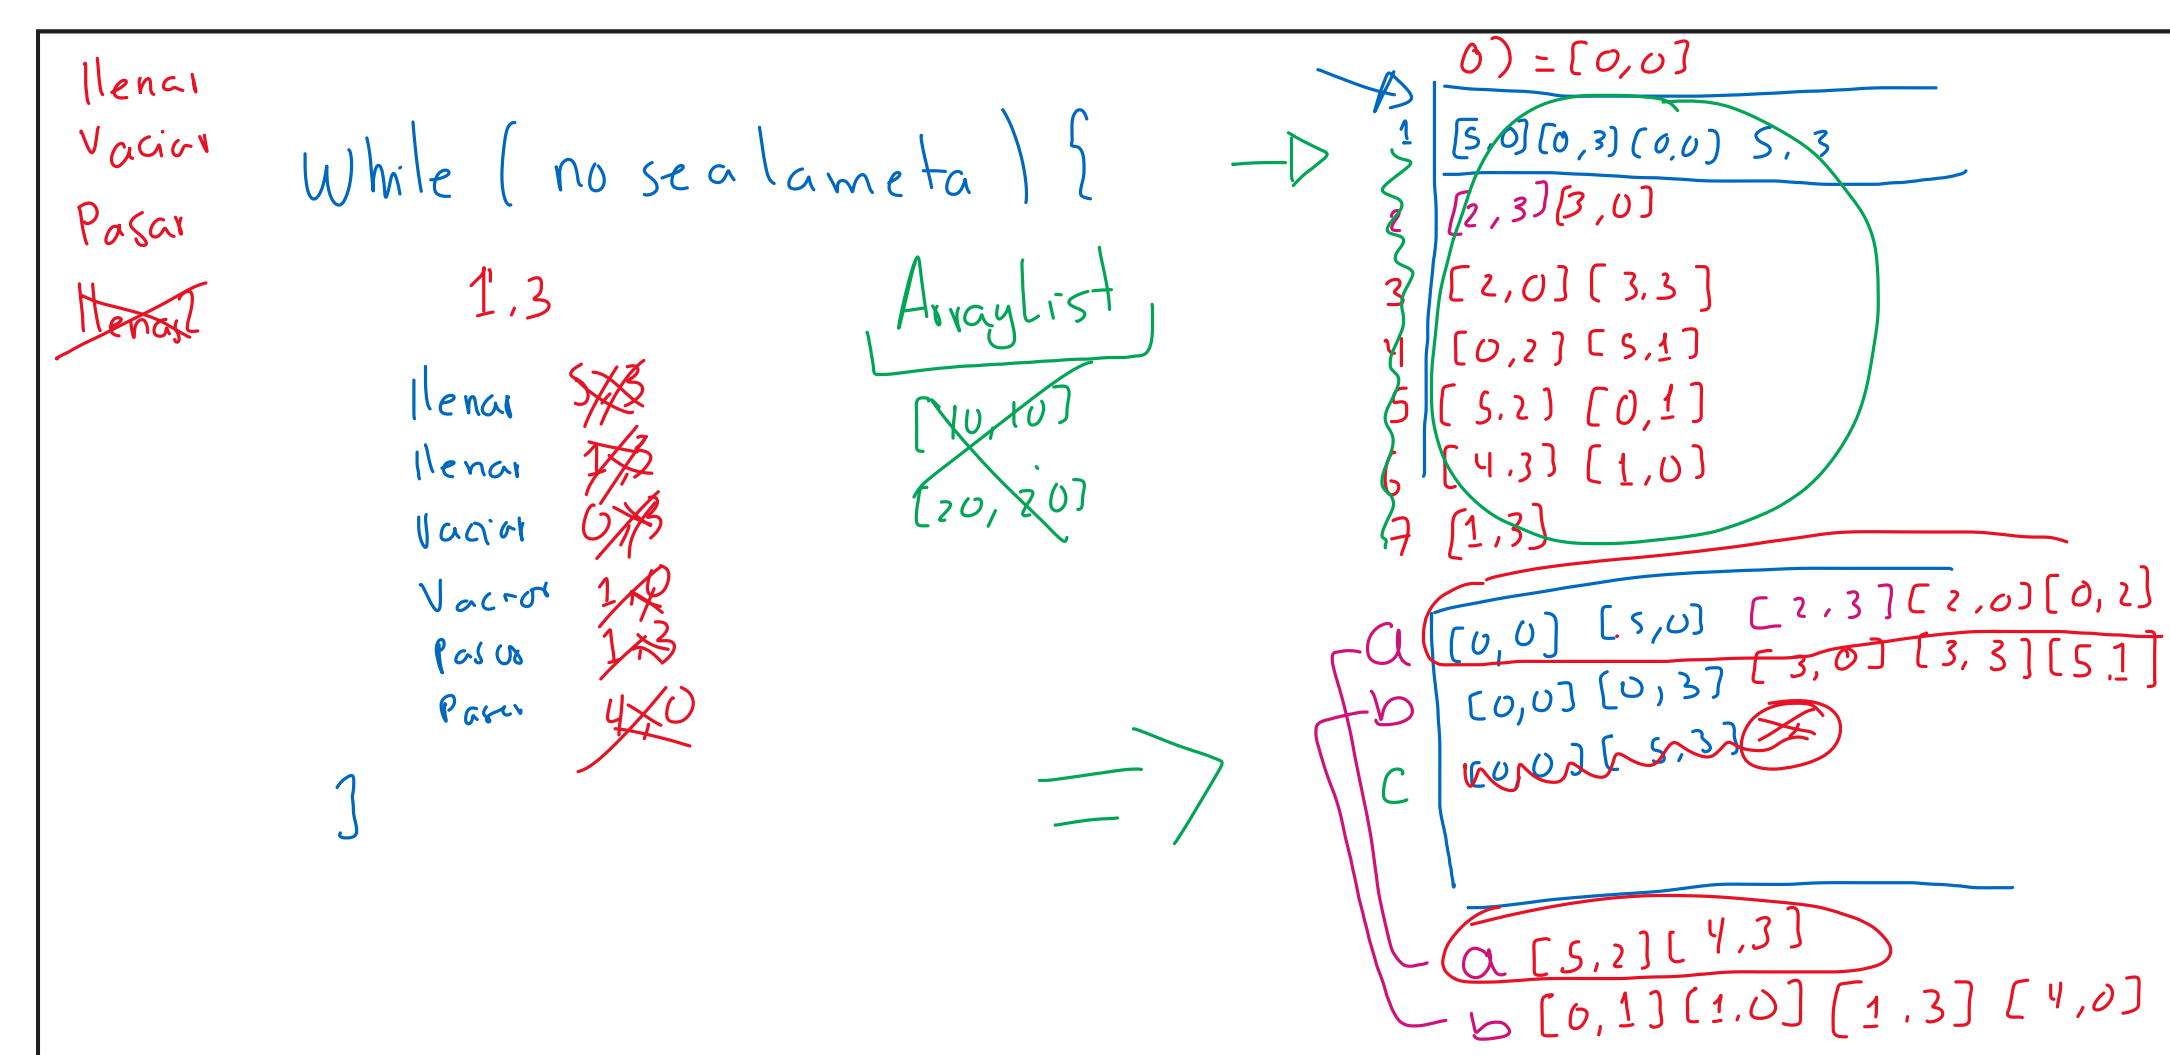 llenar
Vaciar
Pasar
llenar
While ( no sea la meta ) {
1,3
ArrayList
[10,10]
[20,20]
llenar 5,3
llenar
Vaciar 0,3
Vaciar 1,0
Pasar 1,3
Pasar 4,0
}
0) = [0,0]
1 [5,0] [0,3] (0,0) 5,3
2 [2,3] [3,0]
3 [2,0] [3,3]
4 [0,2] [5,1]
5 [5,2] [0,1]
6 [4,3] [1,0]
7 [1,3]
a [0,0] [5,0] [2,3] [2,0] [0,2]
b [0,0] [0,3] [3,0] [3,3] [5,1]
c [0,0] [5,3]
a [5,2] [4,3]
b [0,1] [1,0] [1,3] [4,0]